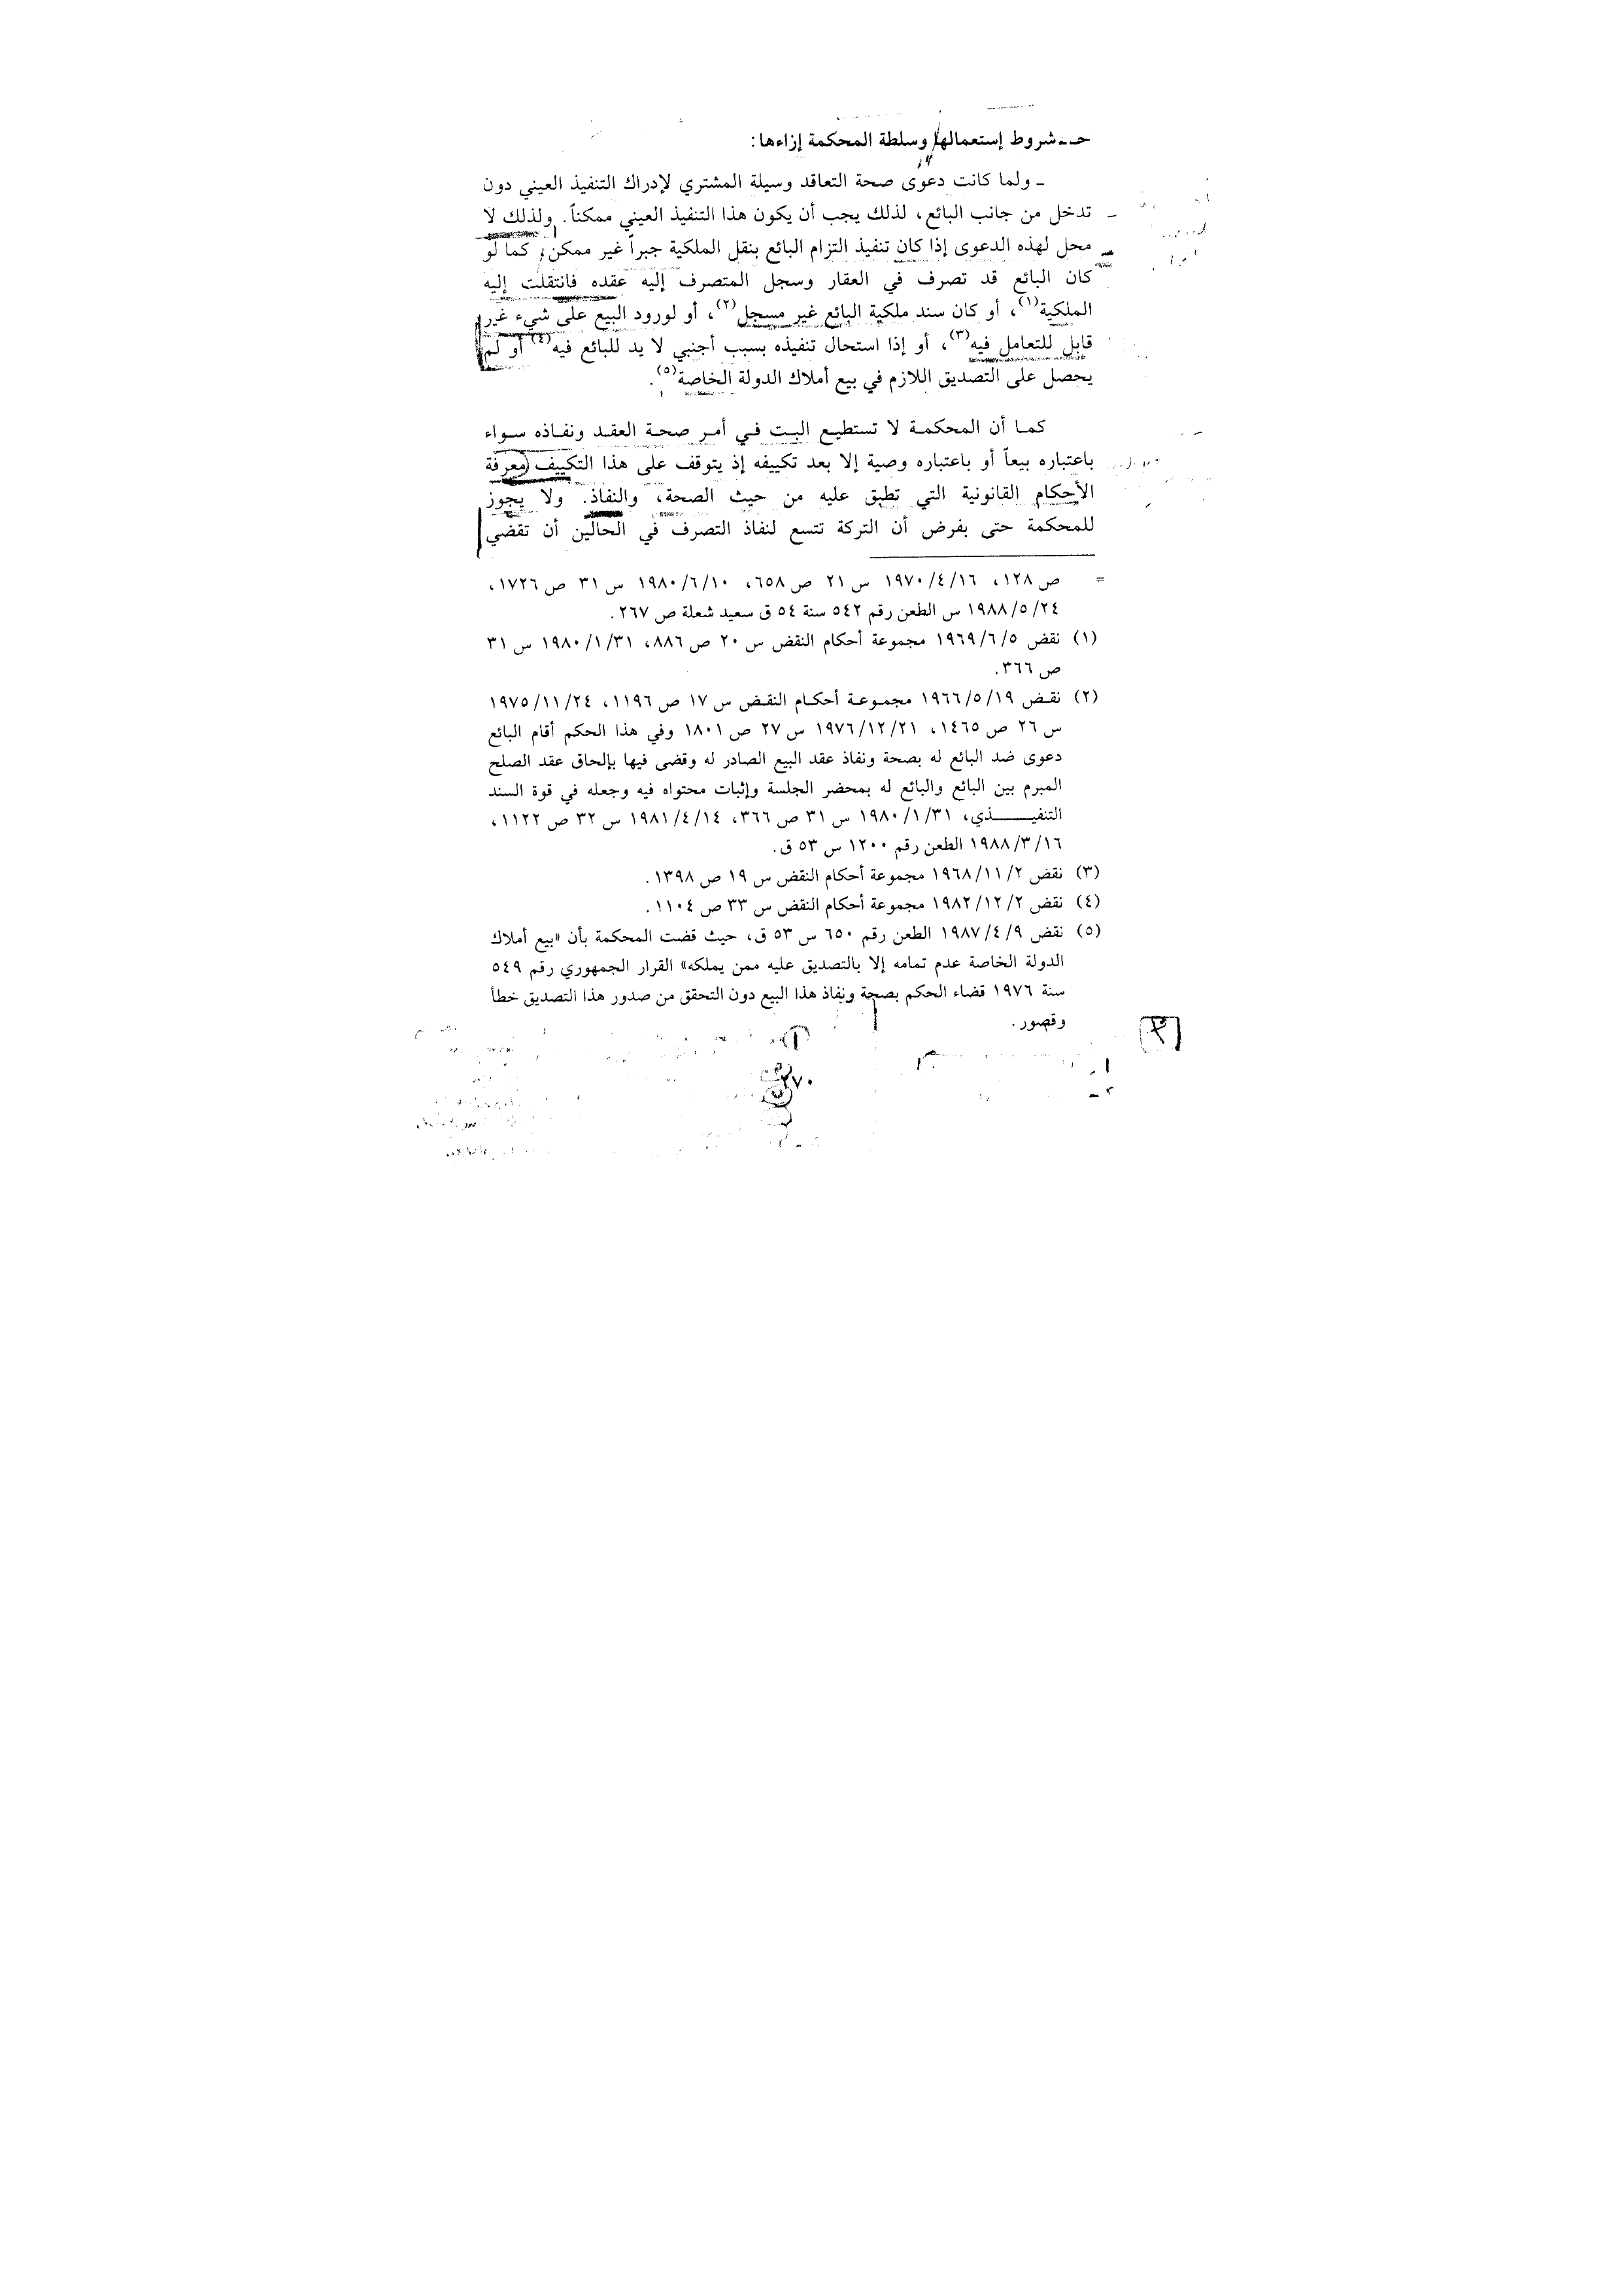 حـ ـ شروط إستعمالها وسلطة المحكمة إزاءها:
ـ ولما كانت دعوى صحة التعاقد وسيلة المشتري لإدراك التنفيذ العيني دون
تدخل من جانب البائع، لذلك يجب أن يكون هذا التنفيذ العيني ممكناً. ولذلك لا
محل لهذه الدعوى إذا كان تنفيذ التزام البائع بنقل الملكية جبراً غير ممكن، كما لو
كان البائع قد تصرف في العقار وسجل المتصرف إليه عقده فانتقلت إليه
الملكية(١)، أو كان سند ملكية البائع غير مسجل(٢)، أو لورود البيع على شيء غير
قابل للتعامل فيه(٣)، أو إذا استحال تنفيذه بسبب أجنبي لا يد للبائع فيه(٤) أو لم
يحصل على التصديق اللازم في بيع أملاك الدولة الخاصة(٥).
كما أن المحكمة لا تستطيع البت في أمر صحة العقد ونفاذه سواء
باعتباره بيعاً أو باعتباره وصية إلا بعد تكييفه إذ يتوقف على هذا التكييف معرفة
الأحكام القانونية التي تطبق عليه من حيث الصحة، والنفاذ. ولا يجوز
للمحكمة حتى بفرض أن التركة تتسع لنفاذ التصرف في الحالين أن تقضي
= ص ١٢٨، ١٩٧٠/٤/١٦ س ٢١ ص ٦٥٨، ١٩٨٠/٦/١٠ س ٣١ ص ١٧٢٦،
١٩٨٨/٥/٢٤ س الطعن رقم ٥٤٢ سنة ٥٤ ق سعيد شعلة ص ٢٦٧.
(١) نقض ١٩٦٩/٦/٥ مجموعة أحكام النقض س ٢٠ ص ٨٨٦، ١٩٨٠/١/٣١ س ٣١
ص ٣٦٦.
(٢) نقض ١٩٦٦/٥/١٩ مجموعة أحكام النقض س ١٧ ص ١١٩٦، ١٩٧٥/١١/٢٤
س ٢٦ ص ١٤٦٥، ١٩٧٦/١٢/٢١ س ٢٧ ص ١٨٠١ وفي هذا الحكم أقام البائع
دعوى ضد البائع له بصحة ونفاذ عقد البيع الصادر له وقضى فيها بإلحاق عقد الصلح
المبرم بين البائع والبائع له بمحضر الجلسة وإثبات محتواه فيه وجعله في قوة السند
التنفيـــــذي، ١٩٨٠/١/٣١ س ٣١ ص ٣٦٦، ١٩٨١/٤/١٤ س ٣٢ ص ١١٢٢،
١٩٨٨/٣/١٦ الطعن رقم ١٢٠٠ س ٥٣ ق.
(٣) نقض ١٩٦٨/١١/٢ مجموعة أحكام النقض س ١٩ ص ١٣٩٨.
(٤) نقض ١٩٨٢/١٢/٢ مجموعة أحكام النقض س ٣٣ ص ١١٠٤.
(٥) نقض ١٩٨٧/٤/٩ الطعن رقم ٦٥٠ س ٥٣ ق، حيث قضت المحكمة بأن «بيع أملاك
الدولة الخاصة عدم تمامه إلا بالتصديق عليه ممن يملكه» القرار الجمهوري رقم ٥٤٩
سنة ١٩٧٦ قضاء الحكم بصحة ونفاذ هذا البيع دون التحقق من صدور هذا التصديق خطأ
وقصور.